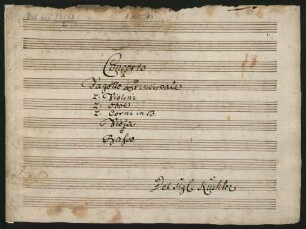 Concerto
Fagotto Principale
2. Violini
2. Oboi
2. Corni in B.
Viola
Basso
Del Sigl. Küchler